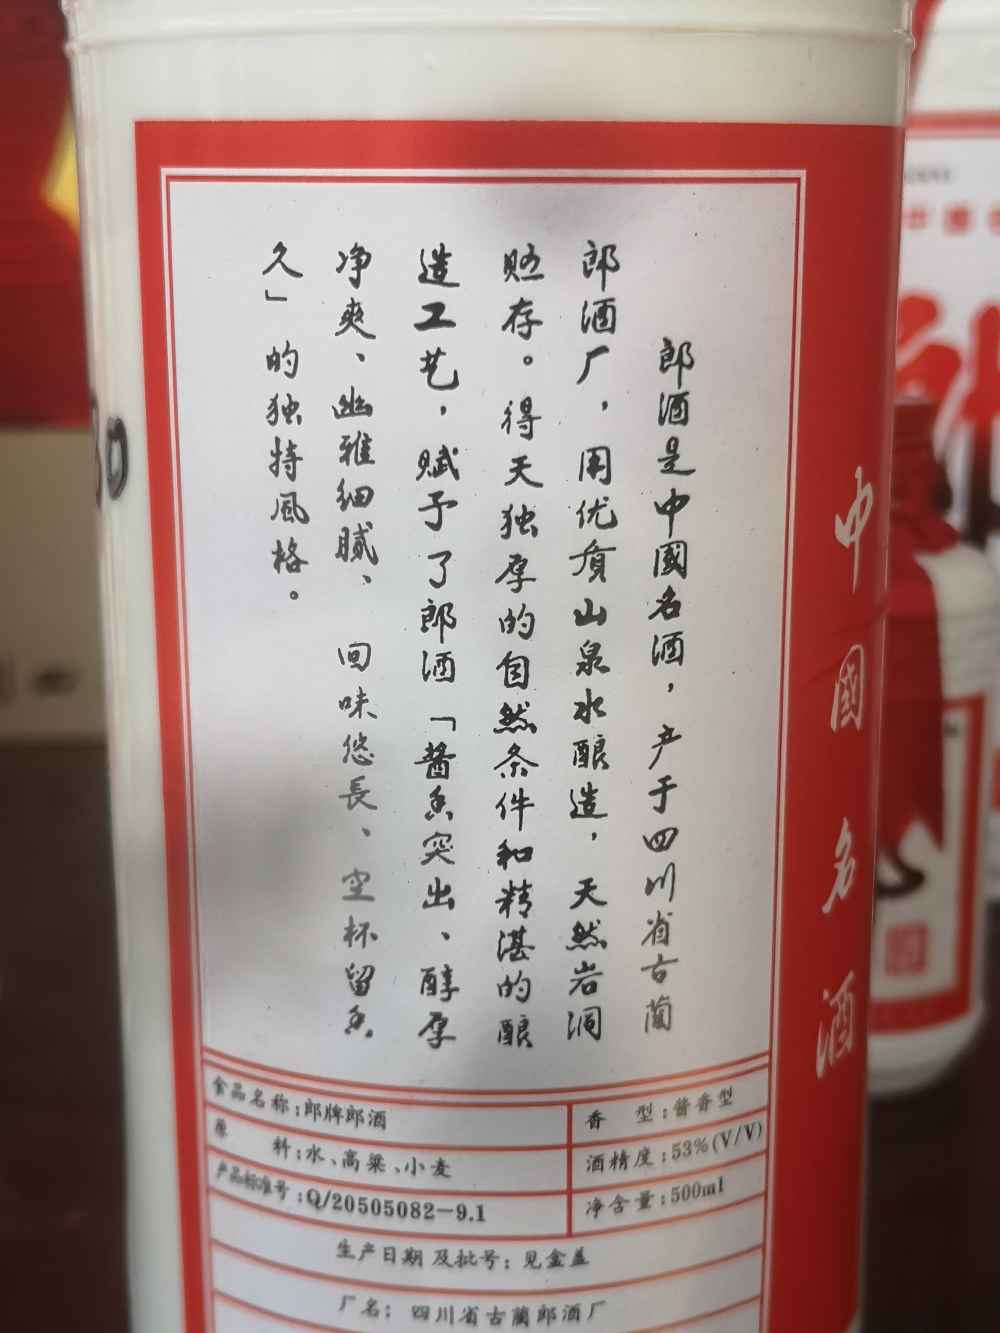 郎酒是中國名酒，产于四川省古蔺
郎酒厂，用优质山泉水酿造，天然岩洞
贮存。得天独厚的自然条件和精湛的酿
造工艺，赋予了郎酒「酱香突出、醇厚
净爽、幽雅细腻、回味悠長、空杯留香
久」的独特風格。
中國名酒
食品名称:郎牌郎酒
香型:酱香型
原料:水、高粱、小麦
酒精度:53%(V/V)
产品标准号:Q/20505082-9.1
净含量:500ml
生产日期及批号:见盒盖
厂名:四川省古蔺郎酒厂